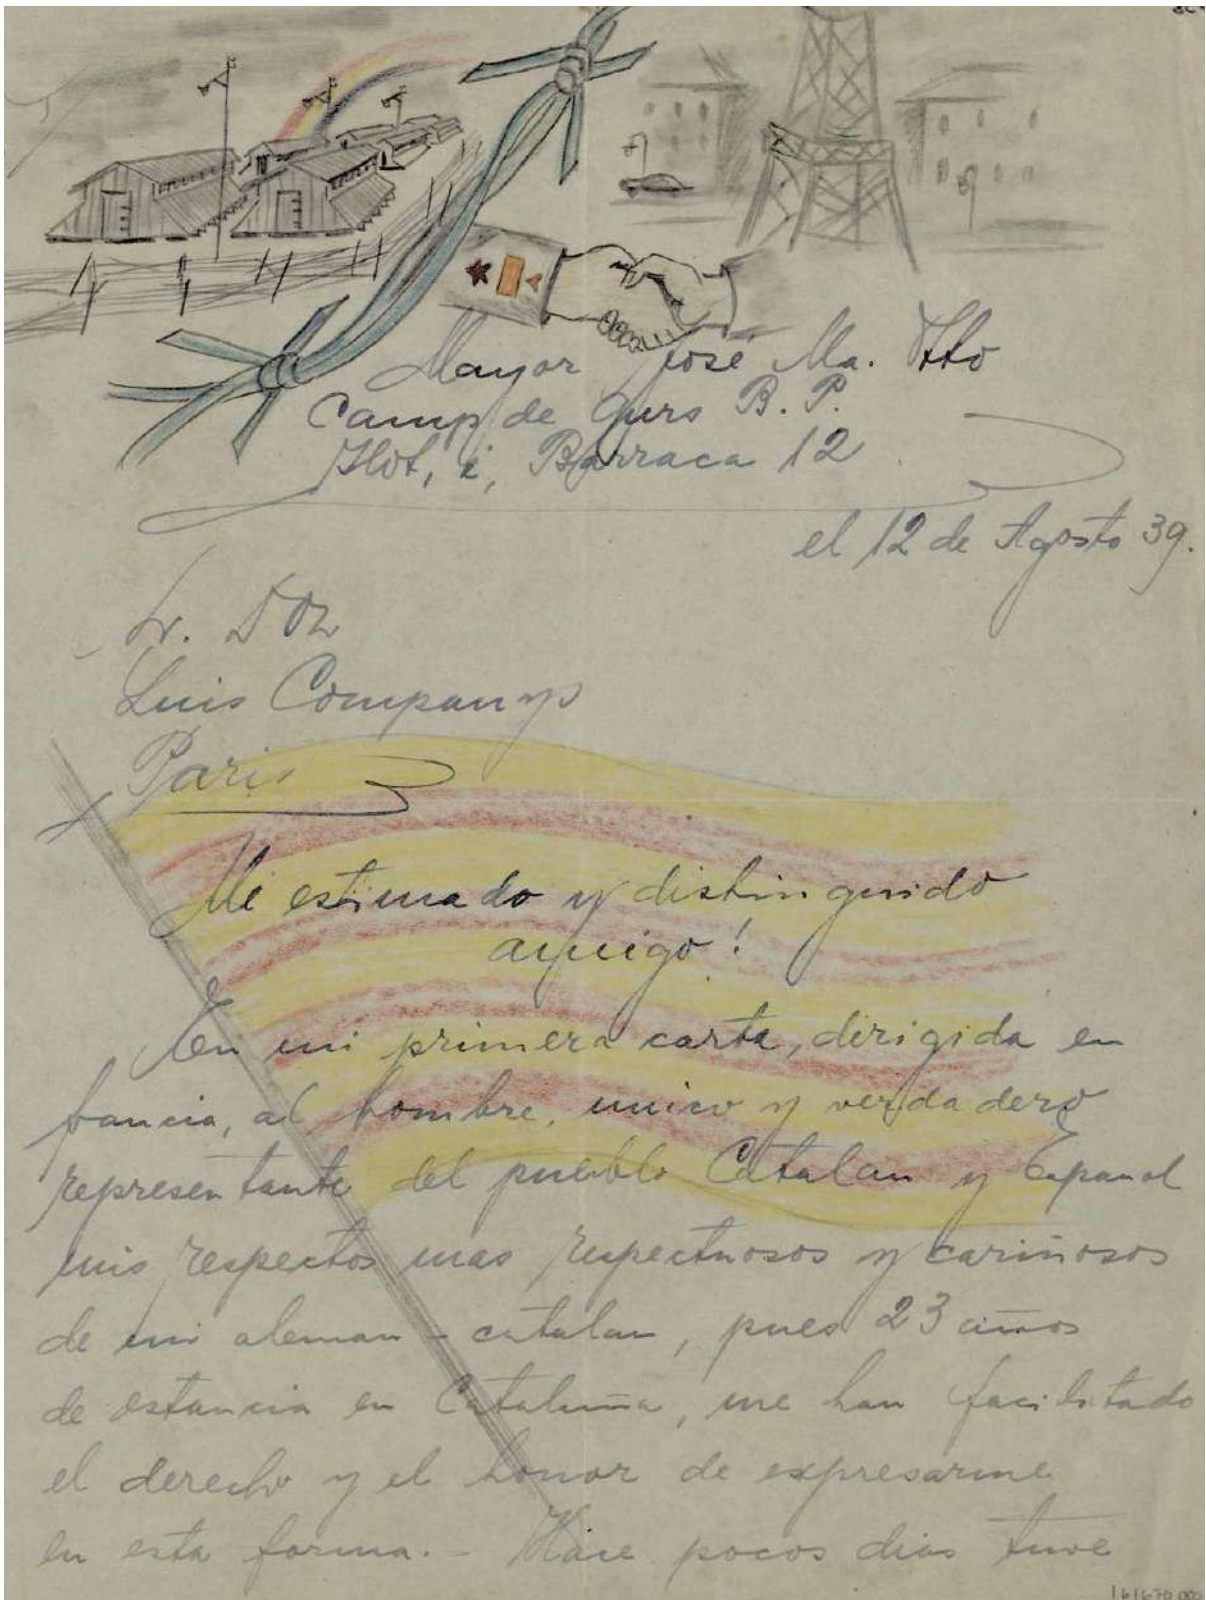 Mayor José Ma. Otto
Camp de Gurs B. P.
Ilot, i, Barraca 12
el 12 de Agosto 39.
Sr. Don
Luis Companys
Paris
Mi estimado y distinguido
amigo!
En mi primera carta, dirigida en
francia, al hombre, unico y verdadero
representante del pueblo Catalan y Español
mis respectos mas respectuosos y cariñosos
de un aleman-catalan, pues 23 años
de estancia en Cataluña, me han facilitado
el derecho y el honor de expresarme
en esta forma. - Hace pocos dias tuve